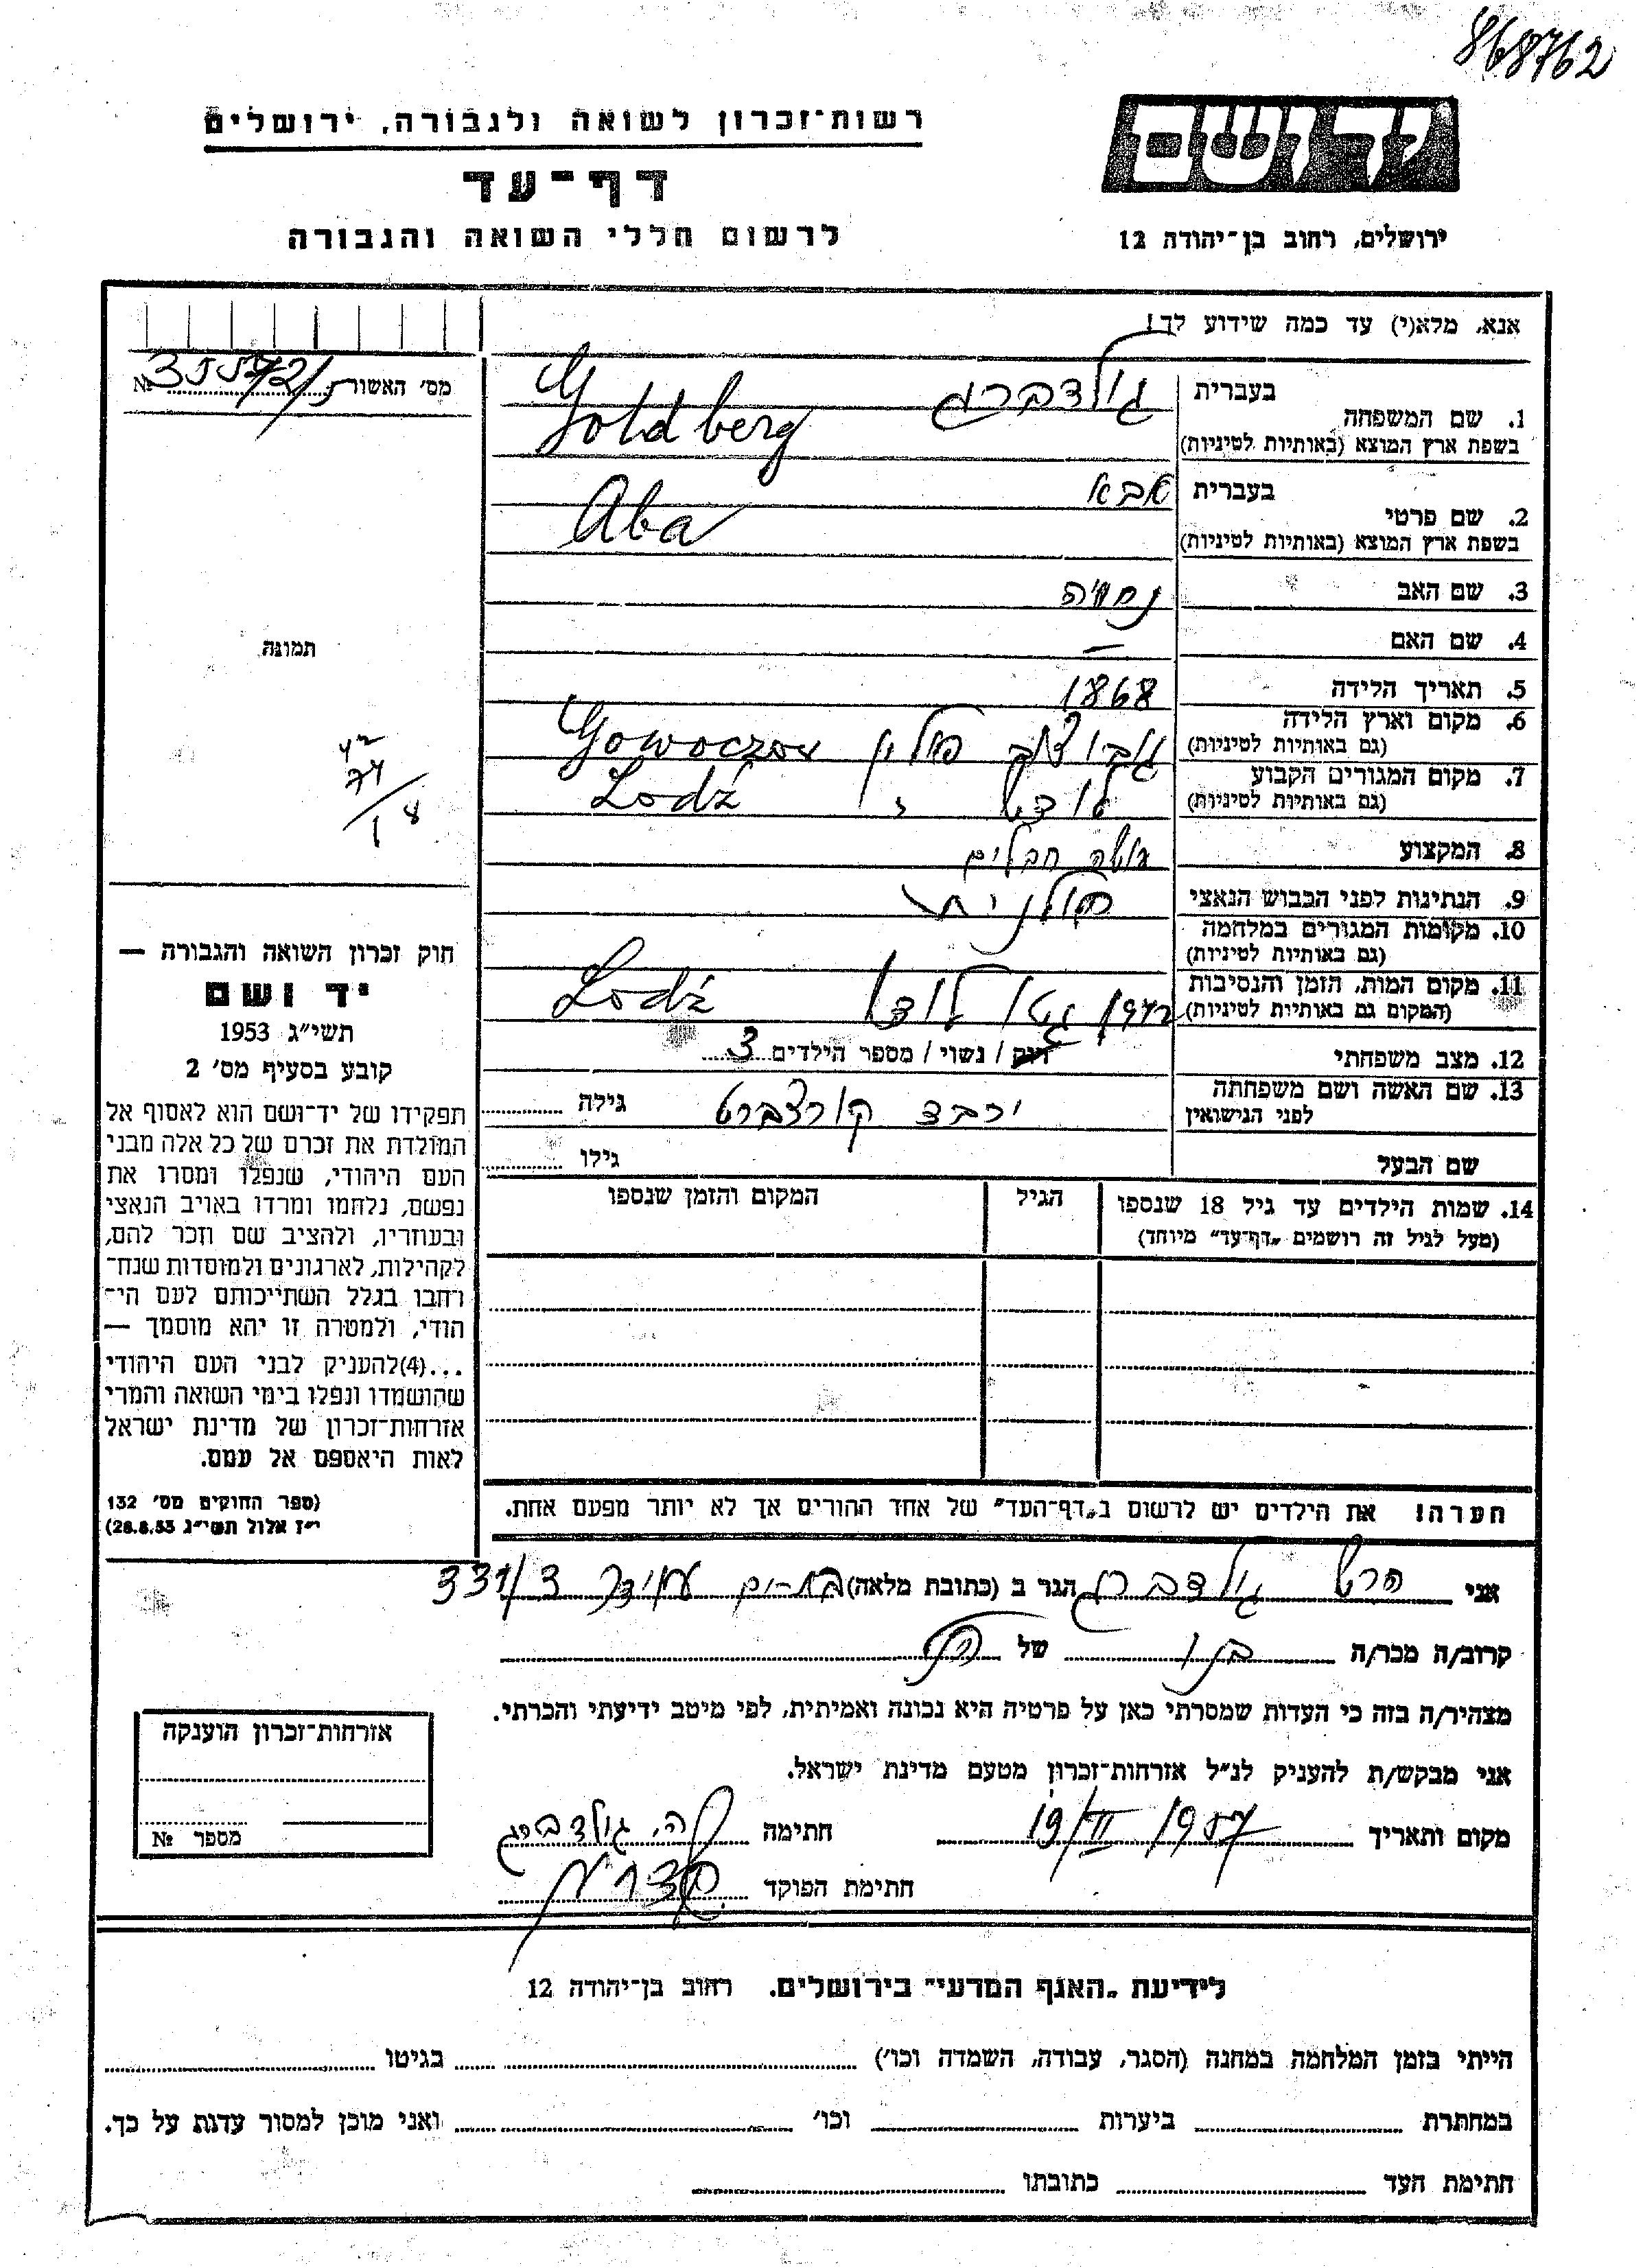 868762
יד ושם
ירושלים, רחוב בן־יהודה 12
רשות־זכרון לשואה ולגבורה, ירושלים
דף־עד
לרשום חללי השואה והגבורה
אנא, מלא(י) עד כמה שידוע לך!
בעברית גולדברג
1. שם המשפחה
בשפת ארץ המוצא (באותיות לטיניות) Goldberg
בעברית אבא
2. שם פרטי
בשפת ארץ המוצא (באותיות לטיניות) Aba
3. שם האב נחמיה
4. שם האם —
5. תאריך הלידה 1868
6. מקום וארץ הלידה
(גם באותיות לטיניות) פולין Gowoczow
7. מקום המגורים הקבוע
(גם באותיות לטיניות) לודז' Lodź
8. המקצוע עושה חבלים
9. הנתינות לפני הכבוש הנאצי פולנית
10. מקומות המגורים במלחמה
(גם באותיות לטיניות)
11. מקום המות, הזמן והנסיבות
(המקום גם באותיות לטיניות) גטו לודז Lodź
12. מצב משפחתי רוק / נשוי / מספר הילדים 3
13. שם האשה ושם משפחתה
לפני הנישואין יכבד קורצברט גילה
שם הבעל גילו
14. שמות הילדים עד גיל 18 שנספו הגיל המקום והזמן שנספו
(מעל לגיל זה רושמים „דף־עד" מיוחד)
הערה! את הילדים יש לרשום ב„דף־העד" של אחד ההורים אך לא יותר מפעם אחת.
מס׳ האשור №
תמונה
42
74
1/8
חוק זכרון השואה והגבורה —
יד ושם
תשי״ג 1953
קובע בסעיף מס׳ 2
תפקידו של יד־ושם הוא לאסוף אל
המולדת את זכרם של כל אלה מבני
העם היהודי, שנפלו ומסרו את
נפשם, נלחמו ומרדו באויב הנאצי
ובעוזריו, ולהציב שם וזכר להם,
לקהילות, לארגונים ולמוסדות שנח־
רחבו בגלל השתייכותם לעם הי־
הודי, ולמטרה זו יהא מוסמך —
...(4)להעניק לבני העם היהודי
שהושמדו ונפלו בימי השואה והמרי
אזרחות־זכרון של מדינת ישראל
לאות היאספם אל עמם.
(ספר החוקים מס׳ 132
י״ז אלול תשי״ג 28.8.53)
אני הרש גולדברג הגר ב (כתובת מלאה) בת-ים עמידר 331/3
קרוב/ה מכר/ה בנו של הנ"ל
מצהיר/ה בזה כי העדות שמסרתי כאן על פרטיה היא נכונה ואמיתית, לפי מיטב ידיעתי והכרתי.
אני מבקש/ת להעניק לנ״ל אזרחות־זכרון מטעם מדינת ישראל.
מקום ותאריך 19/II 1957 חתימה ה. גולדברג
חתימת הפוקד
אזרחות־זכרון הוענקה
מספר №
לידיעת „האגף המדעי" בירושלים. רחוב בן־יהודה 12
הייתי בזמן המלחמה במחנה (הסגר, עבודה, השמדה וכו׳) בגיטו
במחתרת ביערות וכו׳ ואני מוכן למסור עדות על כך.
חתימת העד כתובתו